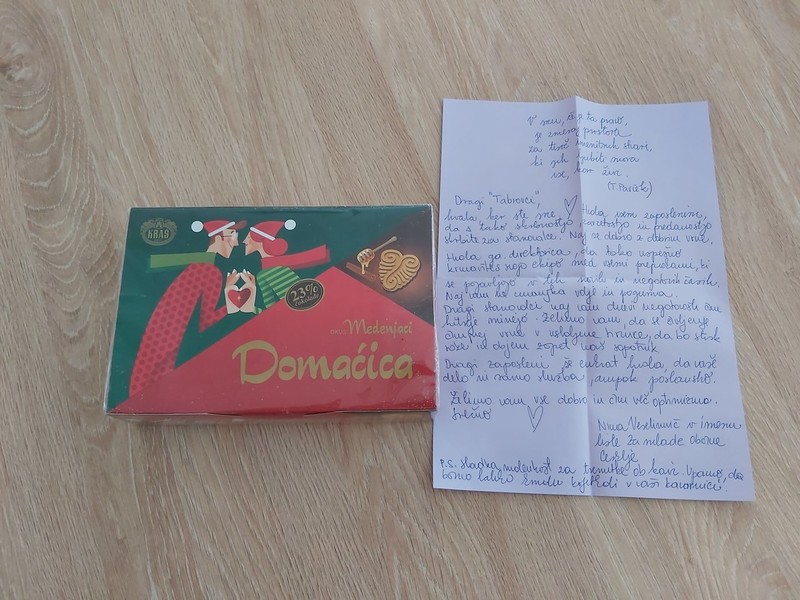 KRAŠ
23%
čokolade
okus Medenjaci
Domaćica
V srcu, če je ta pravo,
je zmeraj prostora
za tisoč imenitnih stvari,
ki jih ljubiti mora
vse, kar živi.
(T. Pavček)
Dragi "Taborci",
hvala, ker ste me. Hvala vsem zaposlenim,
da s tako skrbnostjo, zavzetostjo in predanostjo
skrbite za stanovalce. Naj se dobro z dobrim vrne.
Hvala ga. direktorica, da tako uspešno
krmarite s svojo ekipo med vsemi preprekami, ki
se pojavljajo v teh novih in negotovih časih.
Naj vam ne zmanjka volje in poguma.
Dragi stanovalci naj vam dnevi negotovosti čim
hitreje minejo. Želimo vam, da se življenje
čimprej vrne v ustaljene tirnice, da bo stisk
roke in objem zopet vaš sopotnik.
Dragi zaposleni, še enkrat hvala, da vaše
delo ni samo služba, ampak poslanstvo.
Želimo vam vse dobro in čim več optimizma.
Srečno
Nina v imenu
liste Za mlade Občine
Cerklje
P.S. sladka malenkost za trenutke ob kavi. Upamo, da
bomo lahko zmeda v vaši kavarnici.